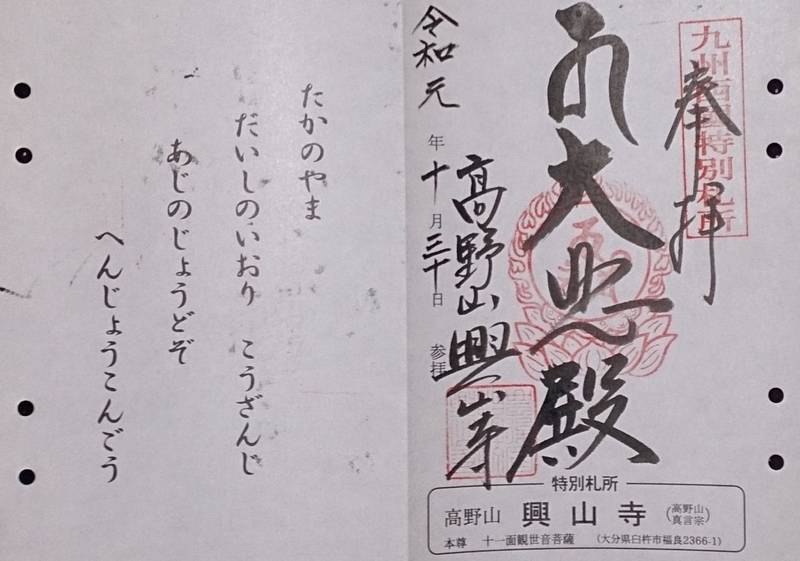 奉拝
九州西国特別札所
大悲殿
高野山興山寺
令和元年十月三十日参拝
特別札所
高野山 興山寺 (高野山真言宗)
本尊 十一面観世音菩薩 (大分県臼杵市福良2366-1)
たかのやま
だいしのいおり こうざんじ
あじのじょうどぞ
へんじょうこんごう